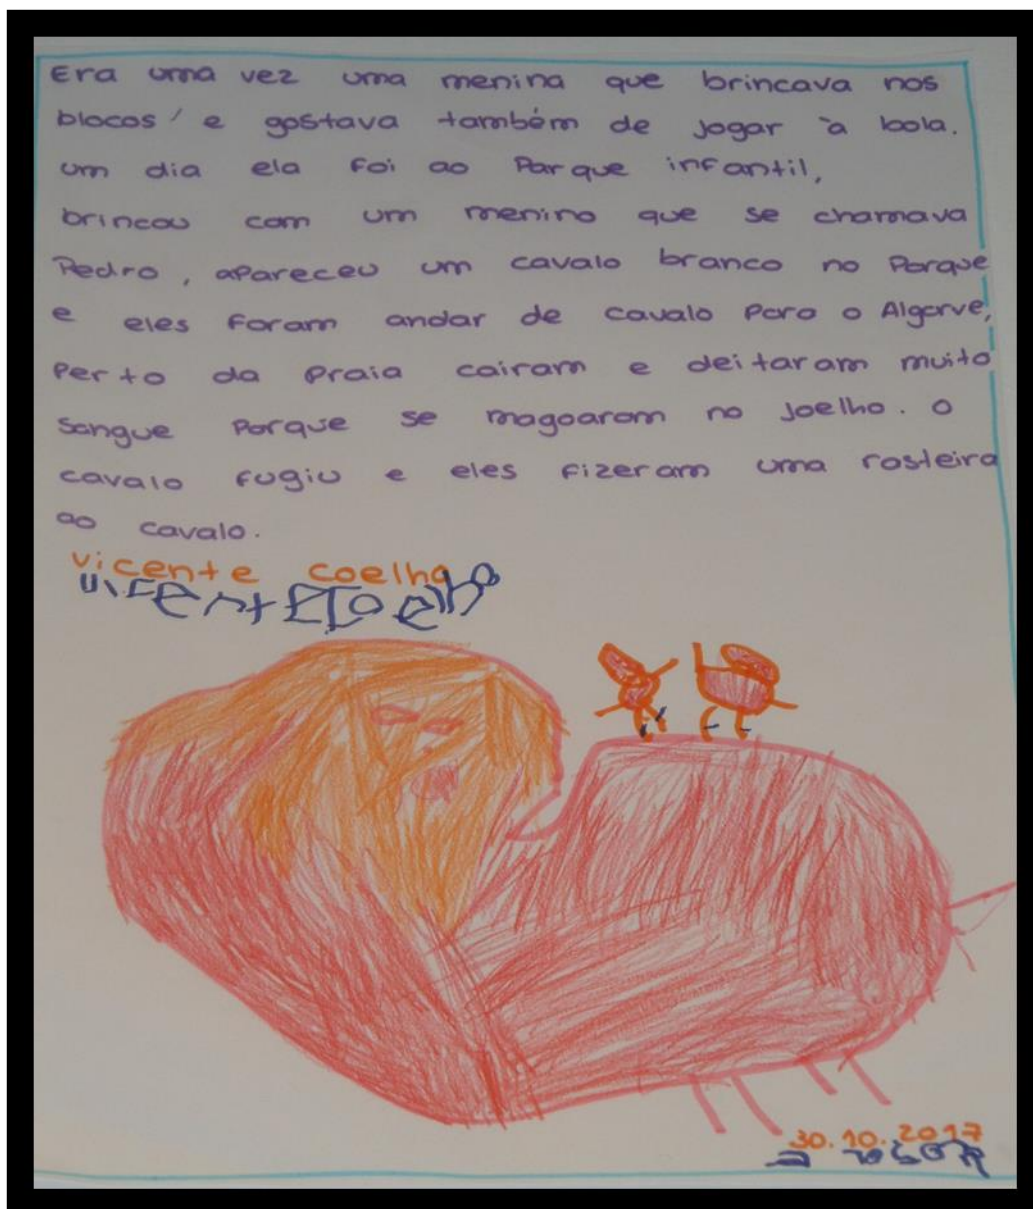 Era uma vez uma menina que brincava nos
blocos e gostava também de jogar à bola.
um dia ela foi ao Parque infantil,
brincou com um menino que se chamava
Pedro, apareceu um cavalo branco no Parque
e eles foram andar de cavalo para o Algarve,
Perto da Praia cairam e deitaram muito
sangue Porque se magoaram no joelho. O
cavalo fugiu e eles fizeram uma rasteira
ao cavalo.
vicente coelho
vicente coelho
30.10.2017